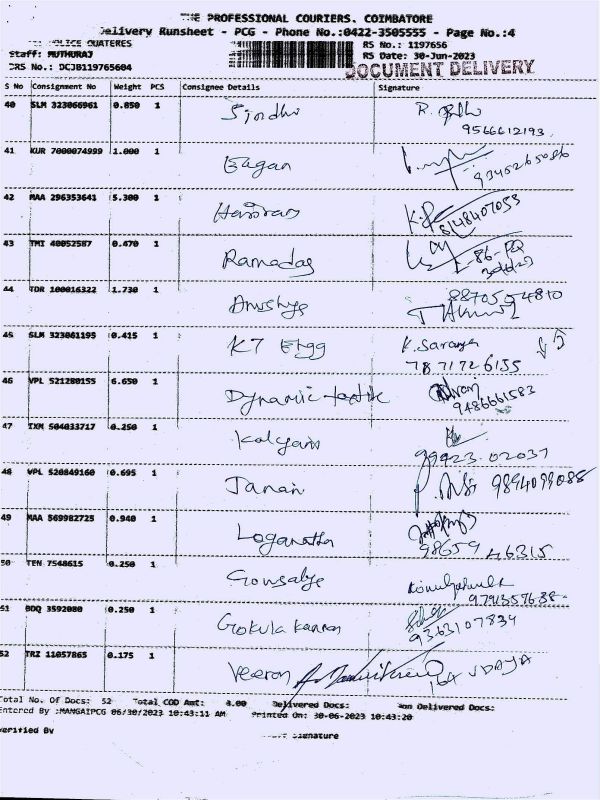 THE PROFESSIONAL COURIERS. COIMBATORE
Delivery Runsheet - PCG - Phone No.:0422-3505555 - Page No.:4
POLICE QUATERES
RS No.: 1197656
Staff: MUTHURAJ
RS Date: 30-Jun-2023
DRS No.: DCJB119765604
DOCUMENT DELIVERY
S No Consignment No Weight PCS Consignee Details Signature
40 SLM 323066961 0.850 1 Sindhu
9566612193
41 KUR 7000074999 1.000 1 Eagan
9345265086
42 MAA 296353641 5.300 1 Hariram
8148407053
43 TMI 40052587 0.470 1 Ramadas
44 TDR 100016322 1.730 1 Anushya
8870554810
45 SLM 323061195 0.415 1 KT Engg K. Saranya
7871726155
46 VPL 521280155 6.650 1 Dynamic textile
9486661583
47 IXM 504033717 0.250 1 Kalyani
99923.02037
48 VPL 520849160 0.695 1 Janani
9894099088
49 MAA 569982725 0.940 1 Loganatha
98659 46315
50 TEN 7548615 0.250 1 Gowsalye
51 BDQ 3592080 0.250 1 Gokula kannan
9363107834
52 TRZ 11057865 0.175 1 Veeron
UDAYA
Total No. Of Docs: 52 Total COD Amt: 0.00 Delivered Docs: Non Delivered Docs:
Entered By :MANGAIPCG 06/30/2023 10:43:11 AM Printed On: 30-06-2023 10:43:20
Verified By
Signature